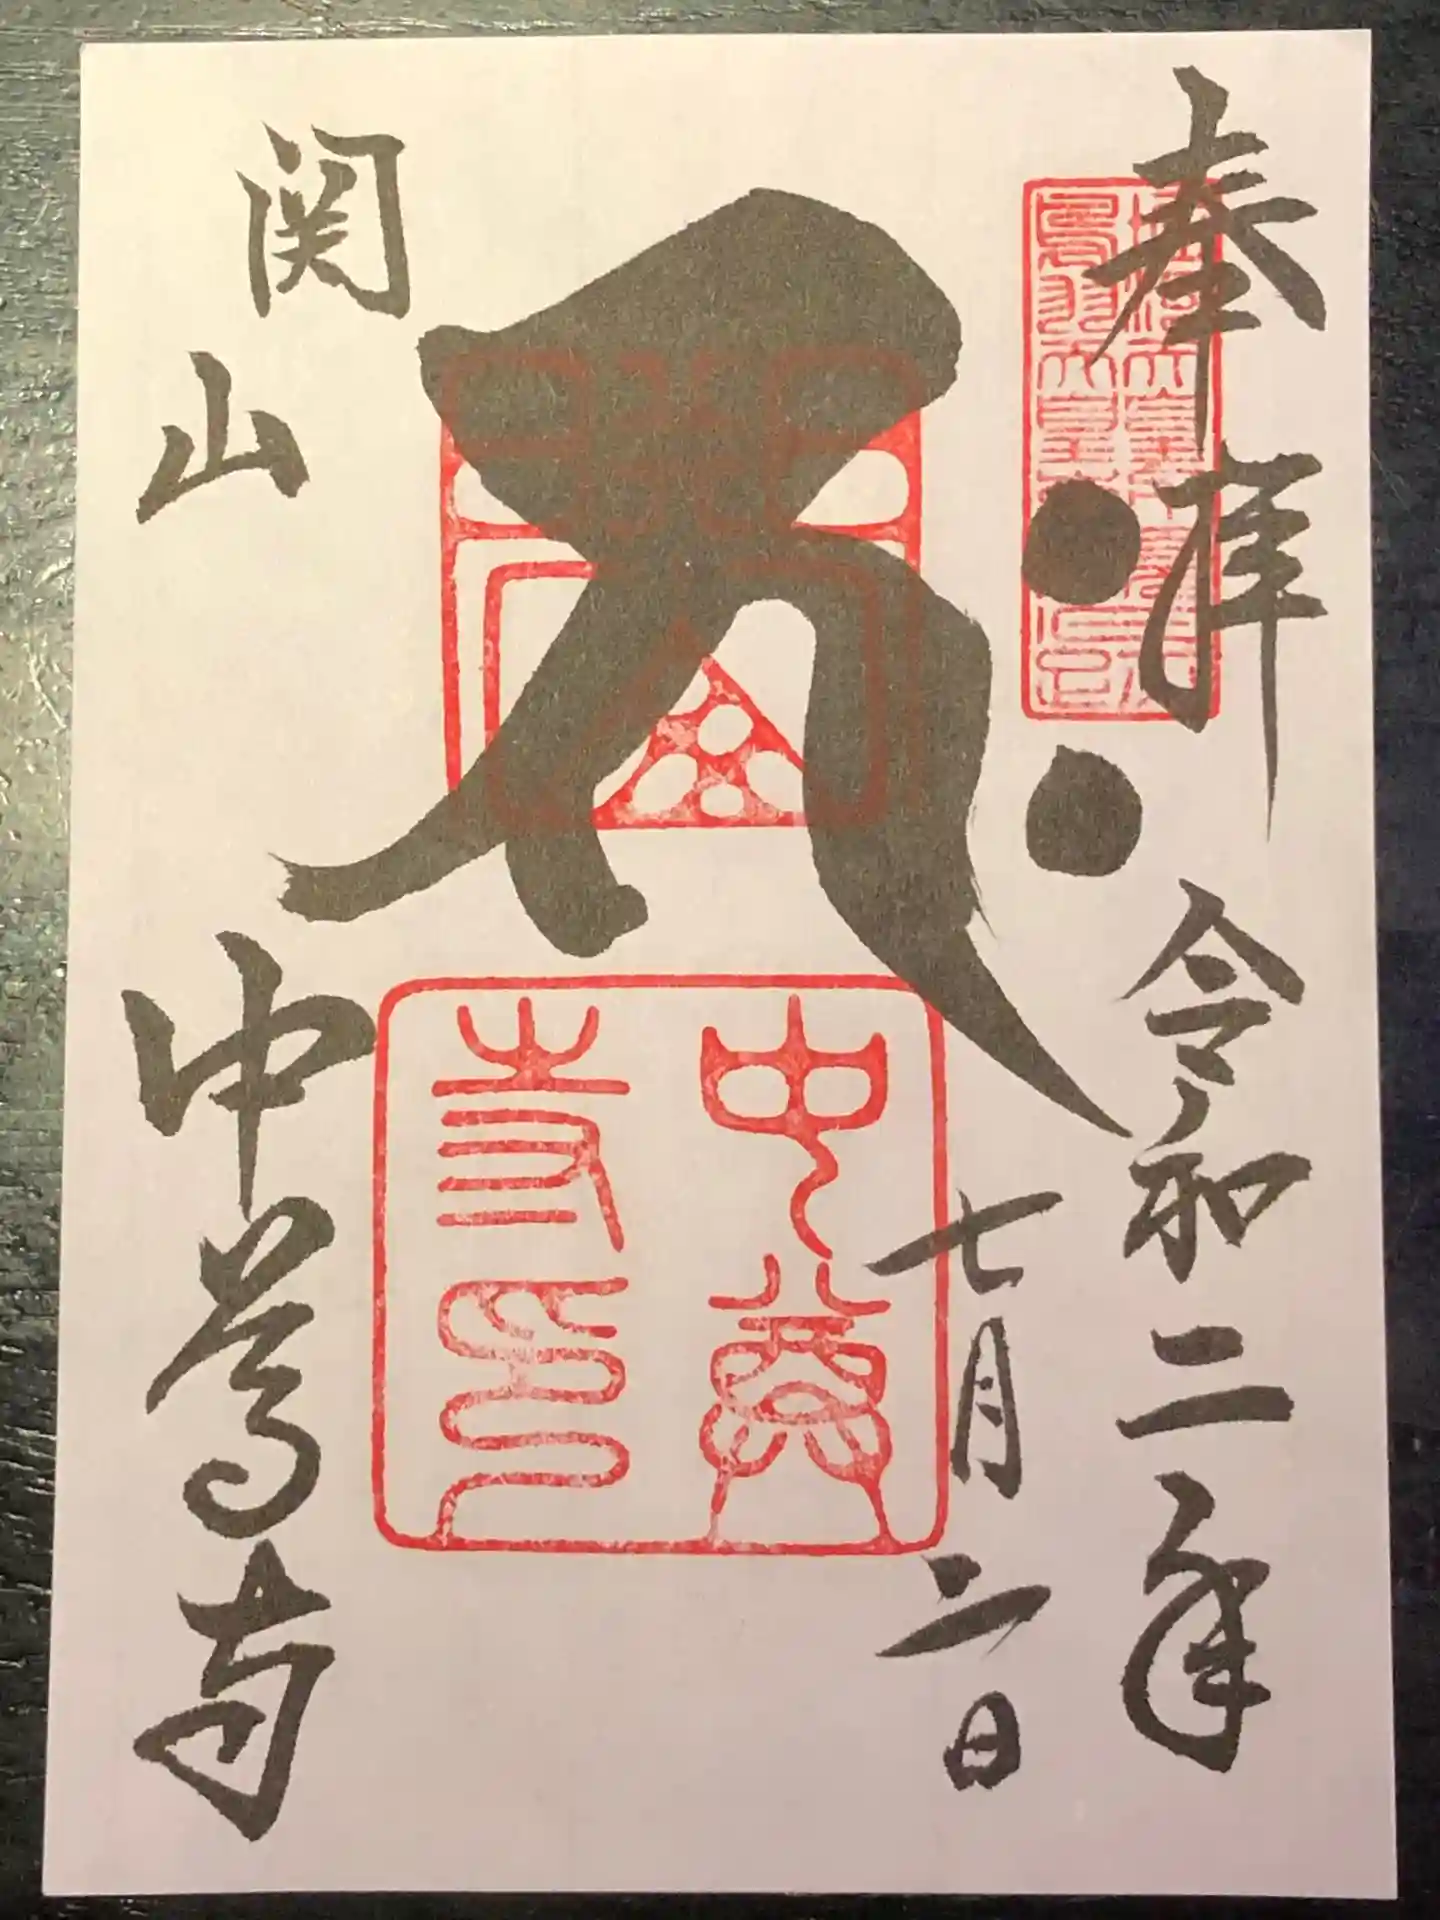 奉拝 令和二年
七月二日
関山 中尊寺
中尊
寺印